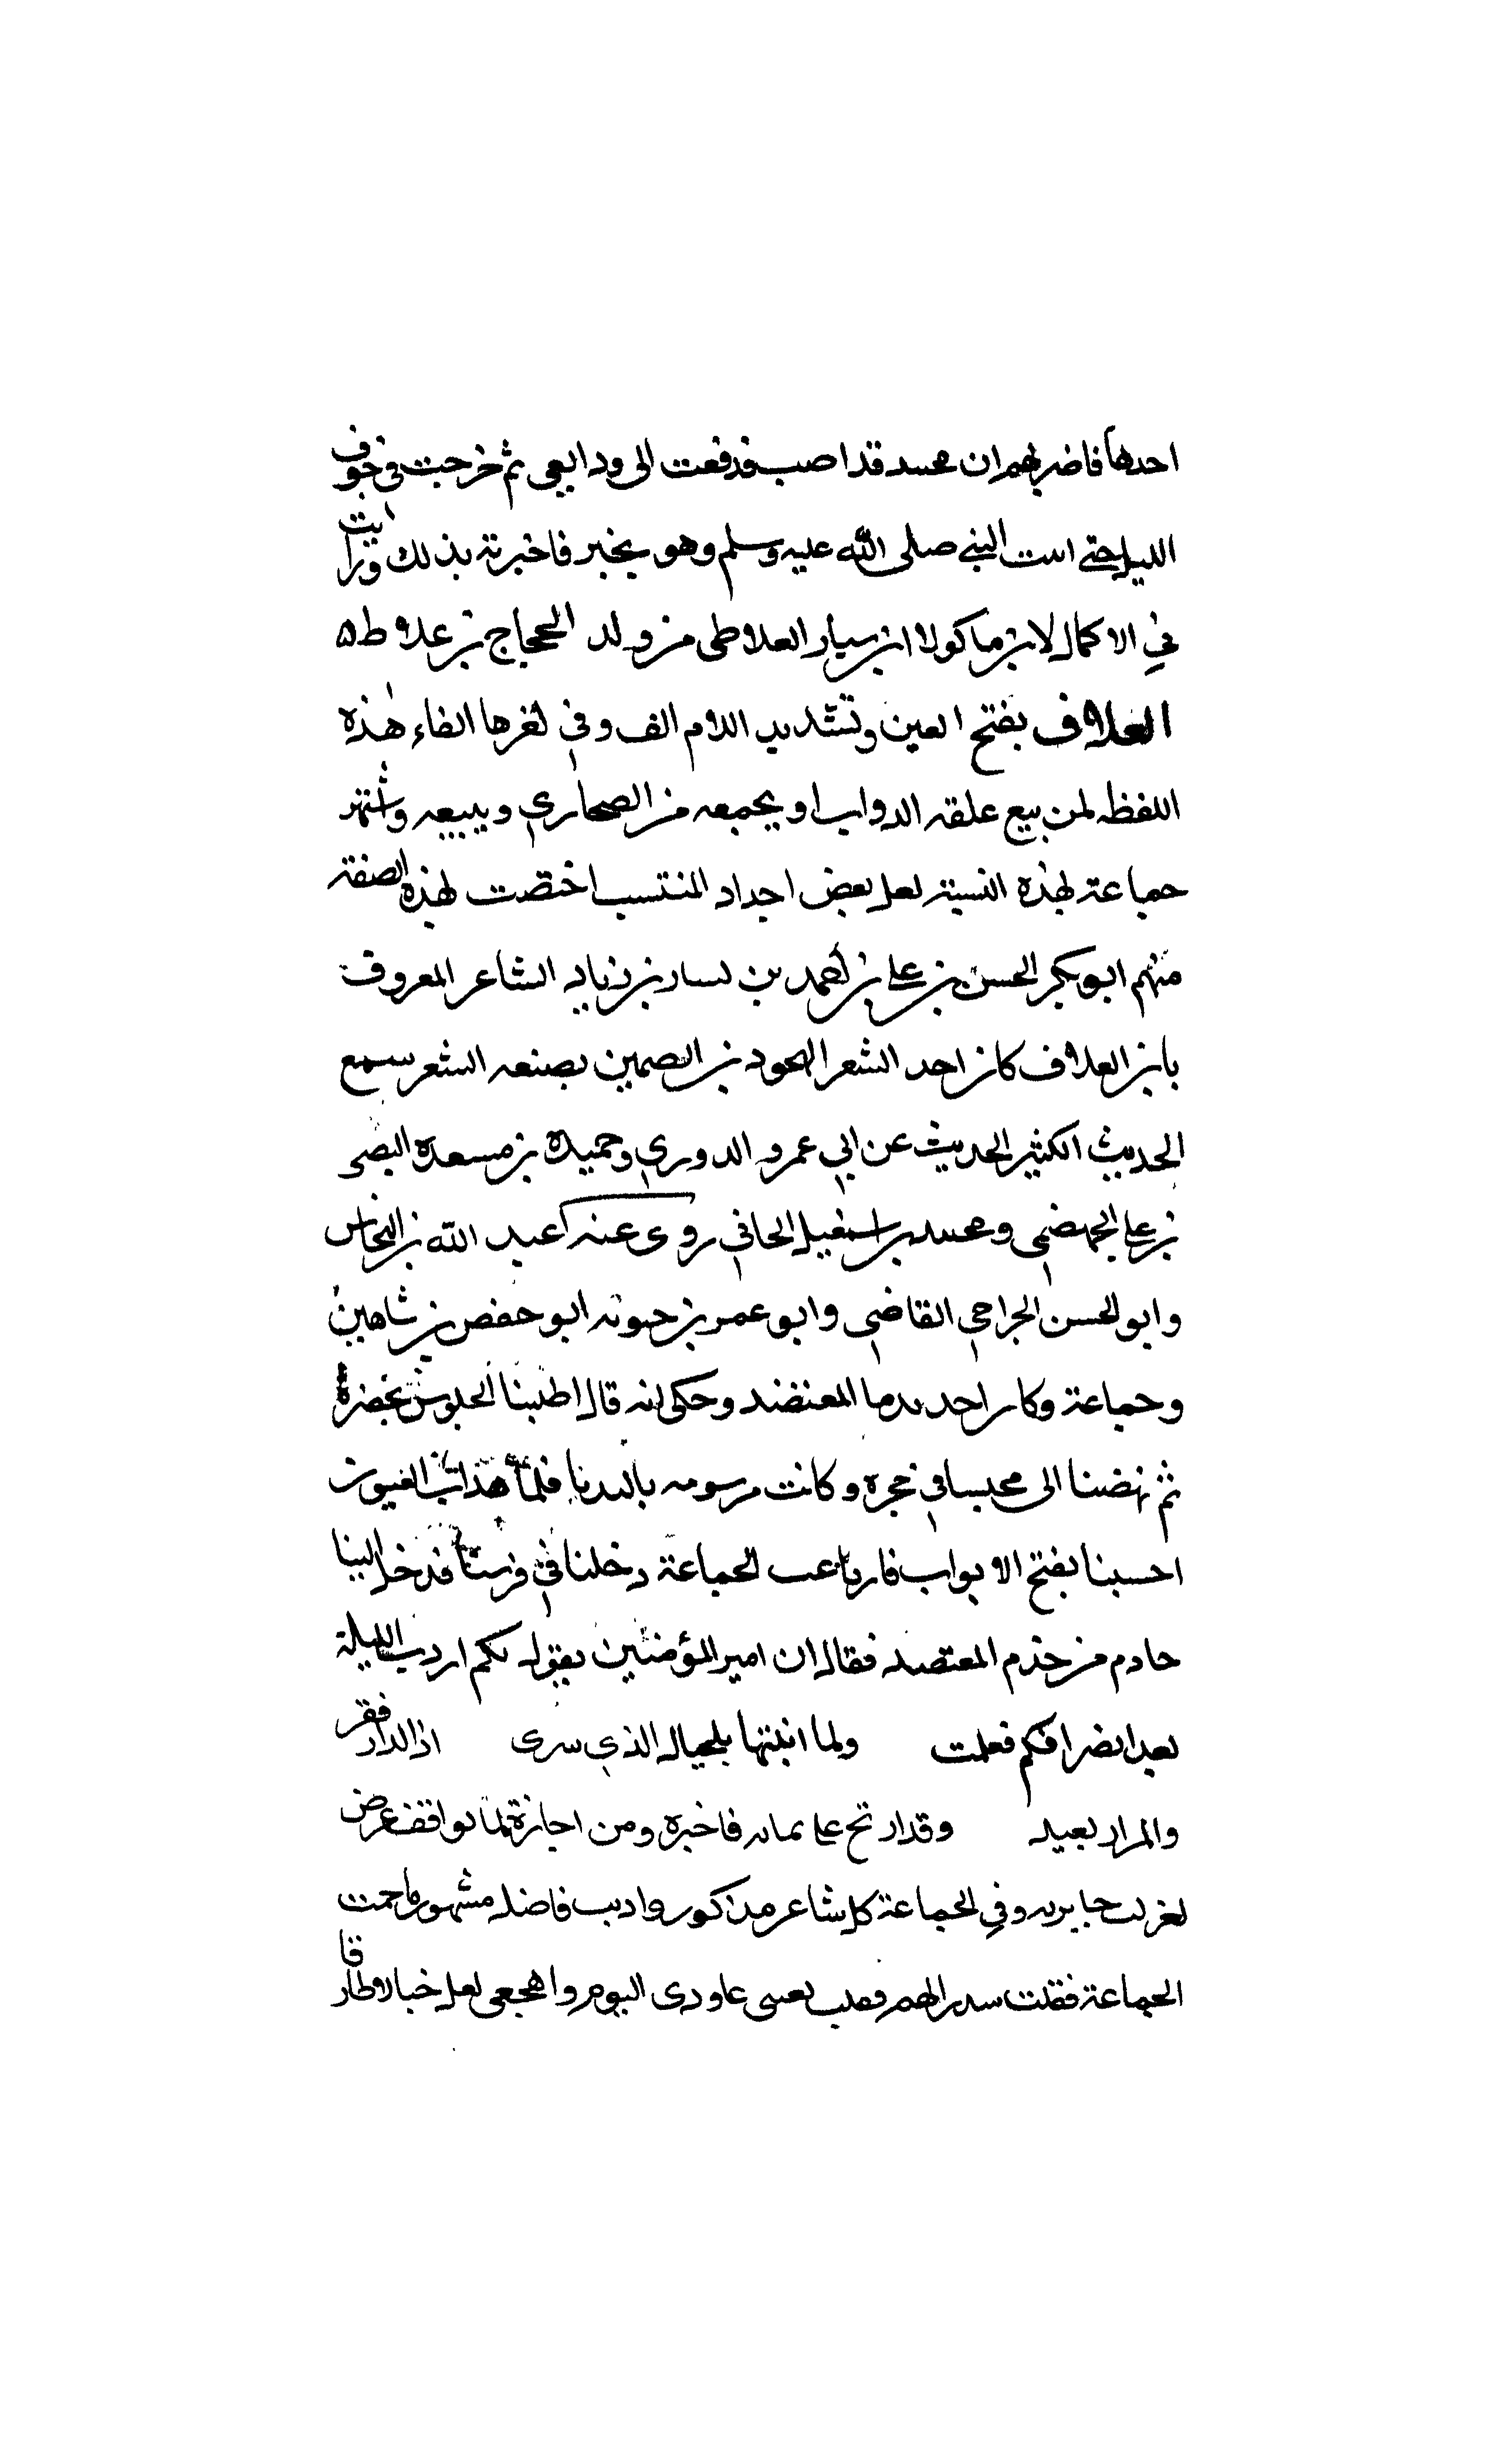 احدها فاضربهم ان محمد قد اصيب فدفعت الى ودايعي ثم خرجت في جوف
الليل حتى اتيت النبي صلى الله عليه وسلم وهو بخيبر فاخبرته بذلك ورايت
في الاكمال لابن ماكولا ابن سيار العلاطي من ولد الحجاج بن علاط ه
العلاف بفتح العين وتشديد اللام الف وفي اخرها الفاء هذه
اللفظه لمن يبيع علقه الدواب او يجمعه من الصحاري ويبيعه واشتهر
جماعة بهذه النسبة لعل بعض اجداد المنتسب اختصت بهذه الصفة
منهم ابو بكر الحسن بن علي بن احمد بن بسار بن زياد الشاعر المعروف
بابن العلاف كان احد الشعر المجود بن الصمين بصنعه الشعر سمع
الحديث الكثير الحديث عن ابي عمرو الدوري وحميدة بن مسعدة البصى
بن علي الجهضمي ومحمد بن اسمعيل الحاني روى عنه عبد الله بن النخاس
وابو الحسن الجراحي القاضي وابو عمر بن حيوته ابو حفص بن شاهين
وجماعة وكان احد ندما المعتضد وحكى انه قال اطلبنا الجلوس بحضرة
ثم نهضنا الى محبسا في حجرة وكانت مرسومه بالندما فلما هدات العيون
احسبنا بفتح الابواب فارتاعت الجماعة دخلنا في فرشنا فدخل الينا
خادم من خدم المعتضد فقال ان امير المؤمنين يقول لكم ارديت الليلة
بعد انصرافكم فعلت ولما انبتها بلحيال الذي سرى اذ الدار فقر
والمرار بعيد وقد ارتج على تمامه فاخبره ومن اجازة بما يوافقه عرض
لغرلت جايزيه وفي الجماعة كل شاعر مذكور واديب فاضل مشهور واحمت
الجماعة فقلت سدرالهم فقلت لعيني عاودي النوم واهجعي لعل خيالا طارقا